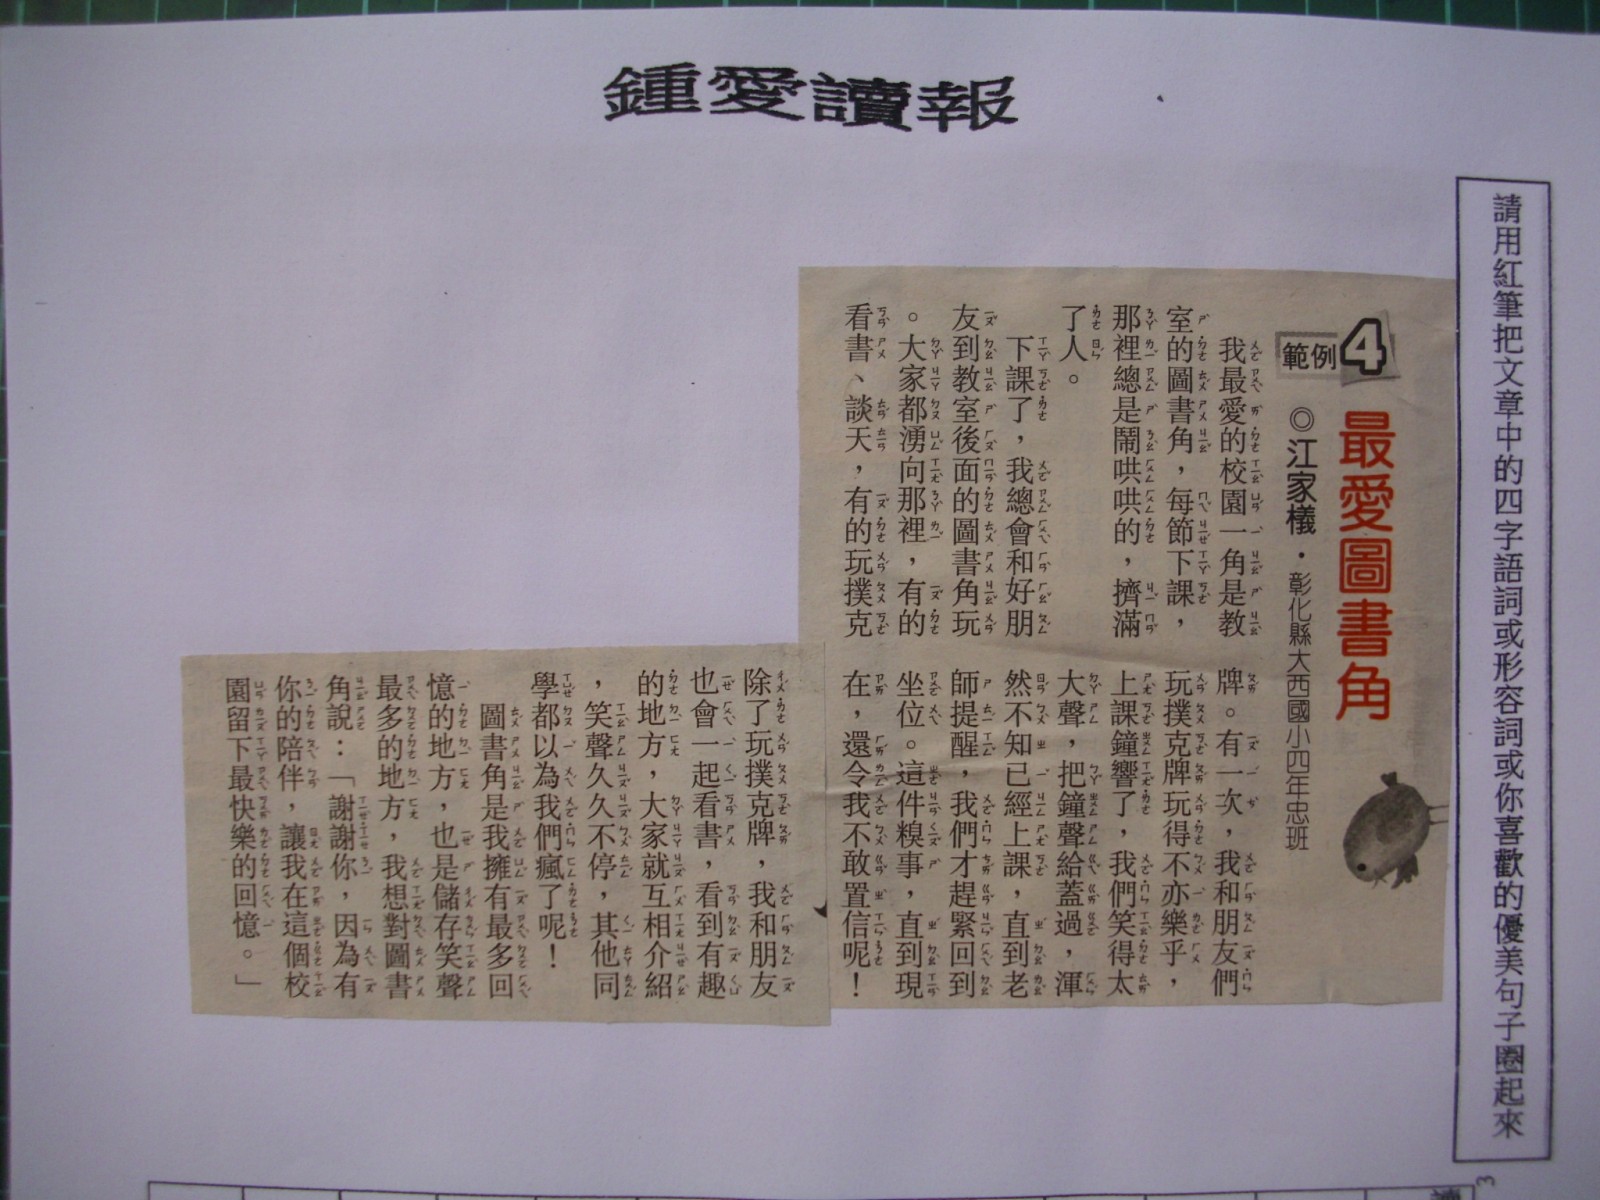 鍾愛讀報
請用紅筆把文章中的四字語詞或形容詞或你喜歡的優美句子圈起來
範例4
最愛圖書角
◎江家檥・彰化縣大西國小四年忠班
我最愛的校園一角是教
室的圖書角，每節下課，
那裡總是鬧哄哄的，擠滿
了人。
下課了，我總會和好朋
友到教室後面的圖書角玩
。大家都湧向那裡，有的
看書、談天，有的玩撲克
牌。有一次，我和朋友們
玩撲克牌玩得不亦樂乎，
上課鐘響了，我們笑得太
大聲，把鐘聲給蓋過，渾
然不知已經上課，直到老
師提醒，我們才趕緊回到
坐位。這件糗事，直到現
在，還令我不敢置信呢！
除了玩撲克牌，我和朋友
也會一起看書，看到有趣
的地方，大家就互相介紹
，笑聲久久不停，其他同
學都以為我們瘋了呢！
圖書角是我擁有最多回
憶的地方，也是儲存笑聲
最多的地方，我想對圖書
角說：「謝謝你，因為有
你的陪伴，讓我在這個校
園留下最快樂的回憶。」
3